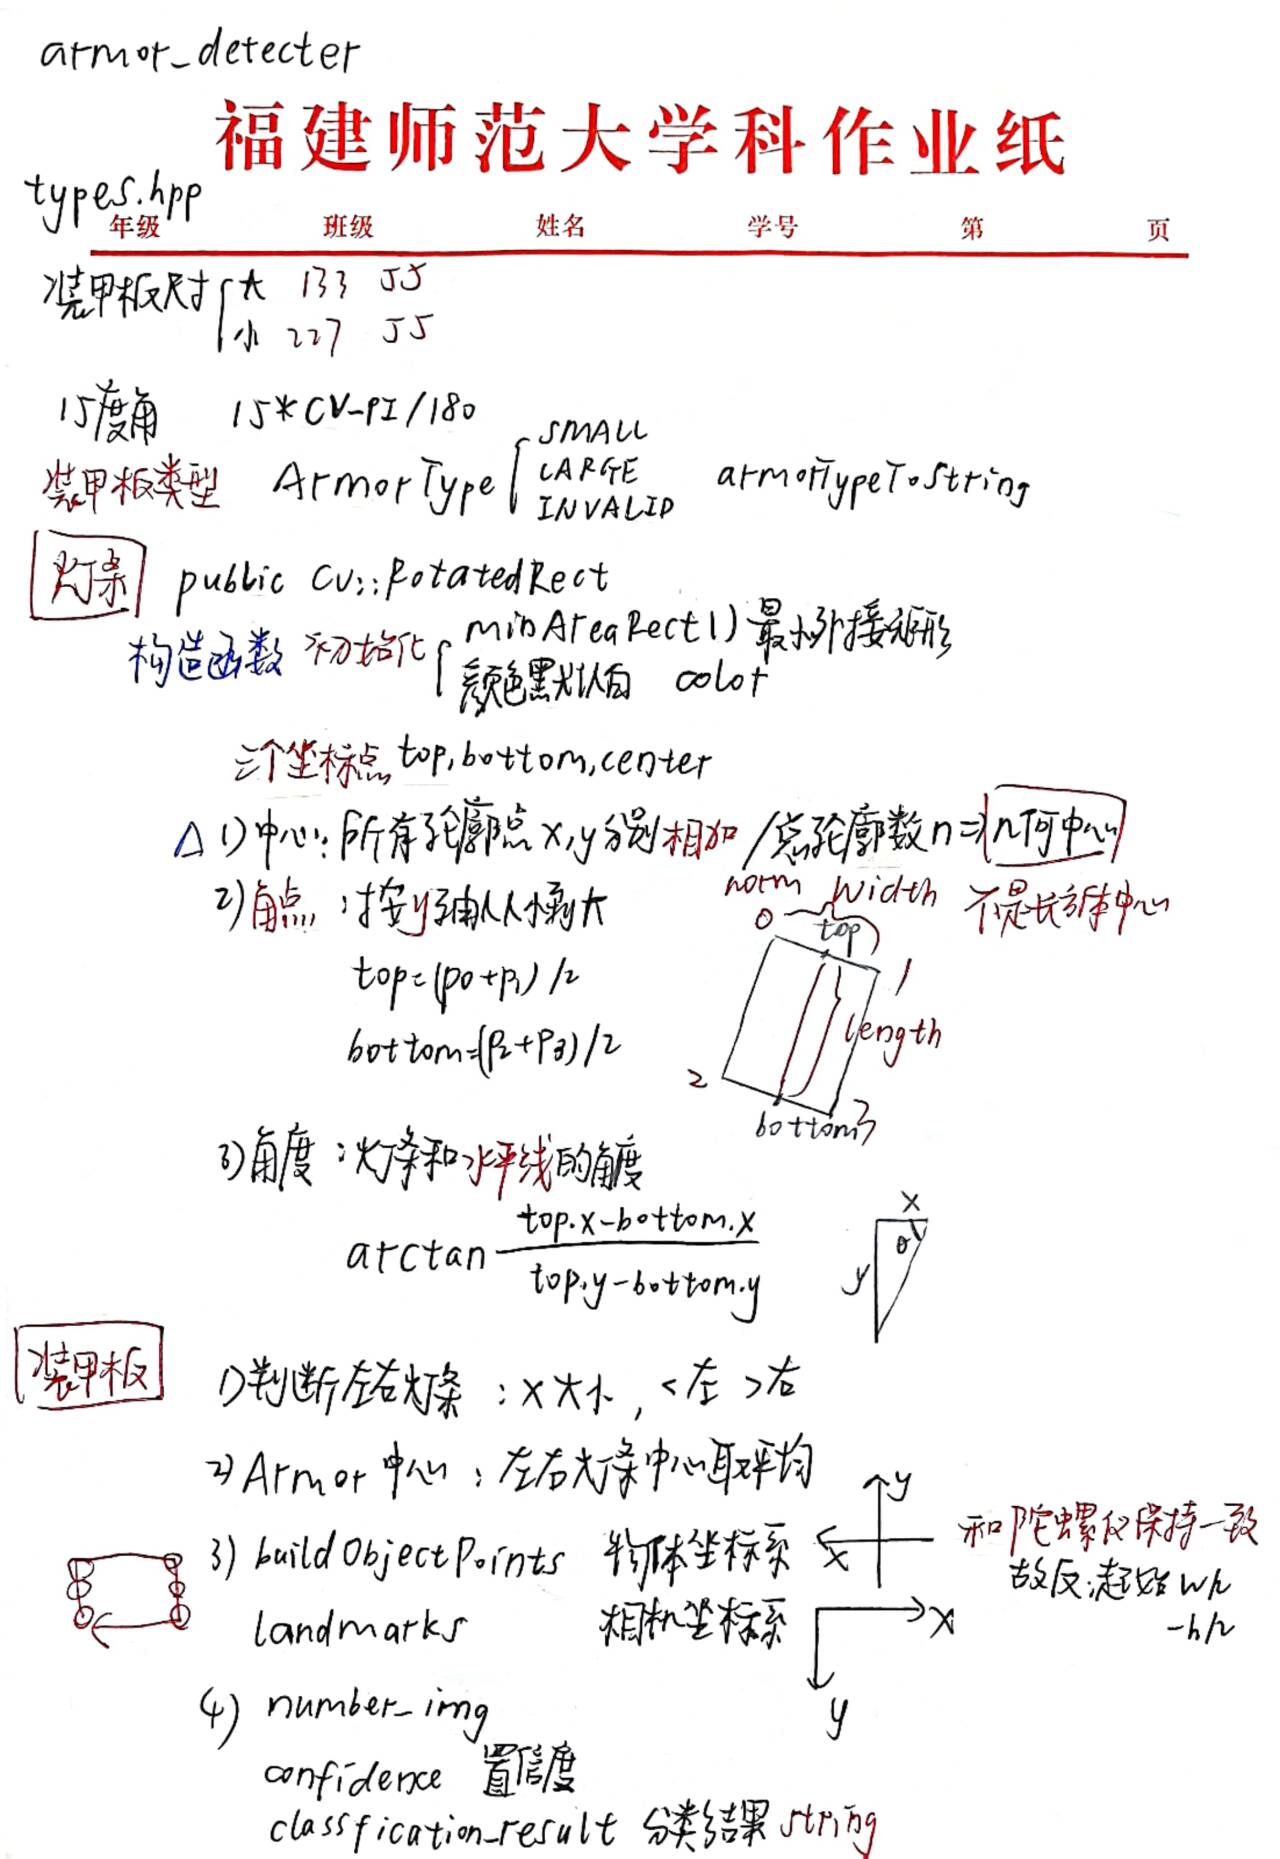 armor_detecter
福建师范大学科作业纸
types.hpp
年级 班级 姓名 学号 第 页
装甲板尺寸 大 133 55
小 227 55
15度角 15*CV_PI/180
装甲板类型 ArmorType SMALL
LARGE
INVALID
armorTypeToString
灯条 public cv::RotatedRect
构造函数 初始化 minAreaRect() 最小外接矩形
颜色默认白 color
三个坐标点 top,bottom,center
△ 1)中心:所有轮廓点x,y分别相加/总轮廓数n⇒几何中心
不是长方体中心
2)角点:按y轴从小到大
top=(p0+p1)/2
bottom=(p2+p3)/2
norm width
0 top 1
length
2 bottom 3
3)角度:灯条和水平线的角度
arctan top.x-bottom.x
top.y-bottom.y
x
θ
y
装甲板 1)判断左右灯条:x大小,<左 >右
2)Armor中心:左右灯条中心取平均
3) buildObjectPoints 物体坐标系 x y
和陀螺仪保持一致
故反,起始w/2
-h/2
landmarks 相机坐标系 x
y
4) number_img
confidence 置信度
classfication_result 分类结果 string